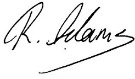 R. Adams